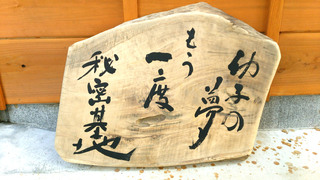 幼子の
夢
もう
一度
秘密基地